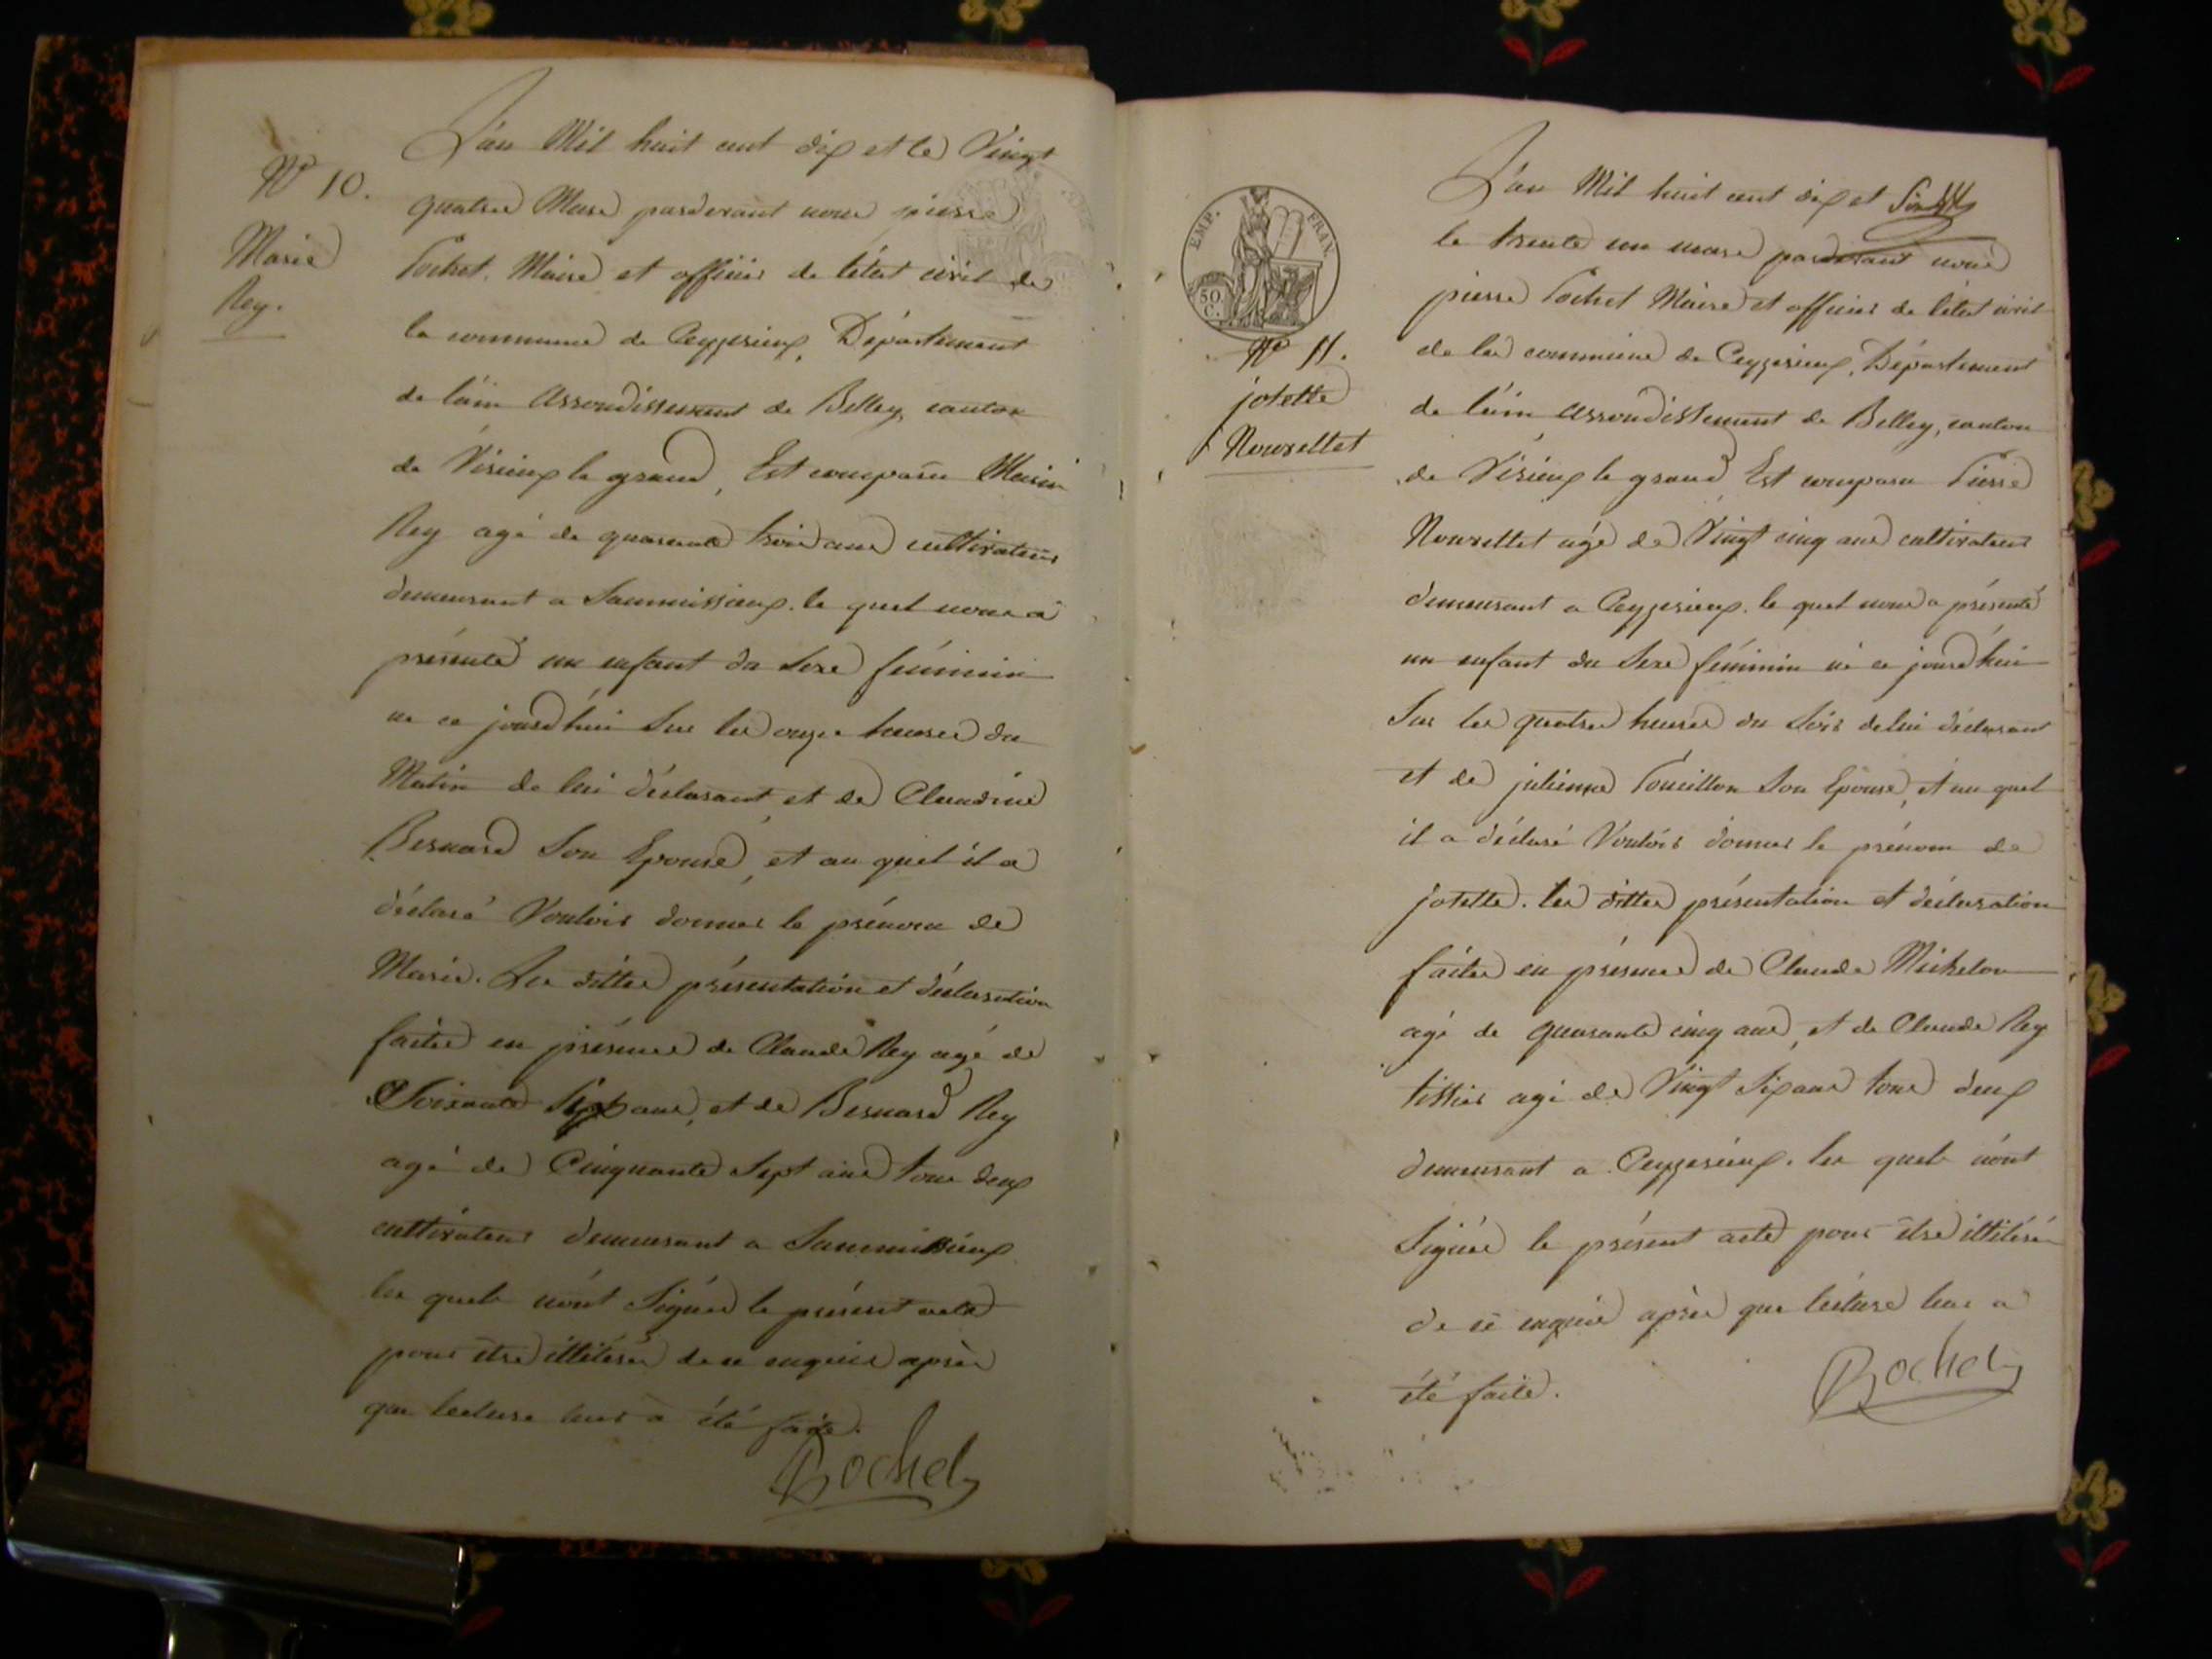 N° 10.
Marie
Rey.
L'an Mil huit cent dix et le Vingt
quatre Mars pardevant nous pierre
Pochet, Maire et officier de l'état civil de
la commune de Ceyzerieux, Département
de l'ain Arrondissement de Belley, canton
de Virieux le grand, Est comparu
Rey agé de quarante trois ans cultivateur
demeurant a Sammissieux. le quel nous a
présenté un enfant du Sexe féminin
né ce jourd'hui Sur les onze heures du
Matin de lui déclarant, et de Claudine
Bernard Son Epouse, et au quel il a
déclaré Vouloir donner le prénom de
Marie. Les dittes présentation et déclaration
faites en présence de Claude Rey agé de
Soixante Sept ans, et de Bernard Rey
agé de Cinquante Sept ans tous deux
cultivateurs demeurant a Sammissieux
les quels n'ont Signés le présent acte
pour être illiterés de ce enquis après
que lecture leur a été faite.
Pochet
EMP. FRAN.
50 C.
N° 11.
josette
Nourellet
L'an Mil huit cent dix et
le trente un mars pardevant nous
pierre Pochet Maire et officier de l'état civil
de la commune de Ceyzerieux, Département
de l'ain arrondissement de Belley, canton
de Virieux le grand Est comparu Pierre
Nourellet agé de Vingt cinq ans cultivateur
demeurant a Ceyzerieux. le quel nous a présenté
un enfant du Sexe féminin né ce jourd'hui
Sur les quatre heures du Soir de lui déclarant
et de julienne Pomillon Son Epouse, et au quel
il a déclaré Vouloir donner le prénom de
josette. les dittes présentation et déclaration
faites en présence de Claude Michelon
agé de quarante cinq ans, et de Claude Rey
tissier agé de Vingt Six ans tous deux
demeurant a Ceyzerieux. les quels n'ont
Signés le présent acte pour être illiterés
de ce enquis après que lecture leur a
été faite.
Pochet